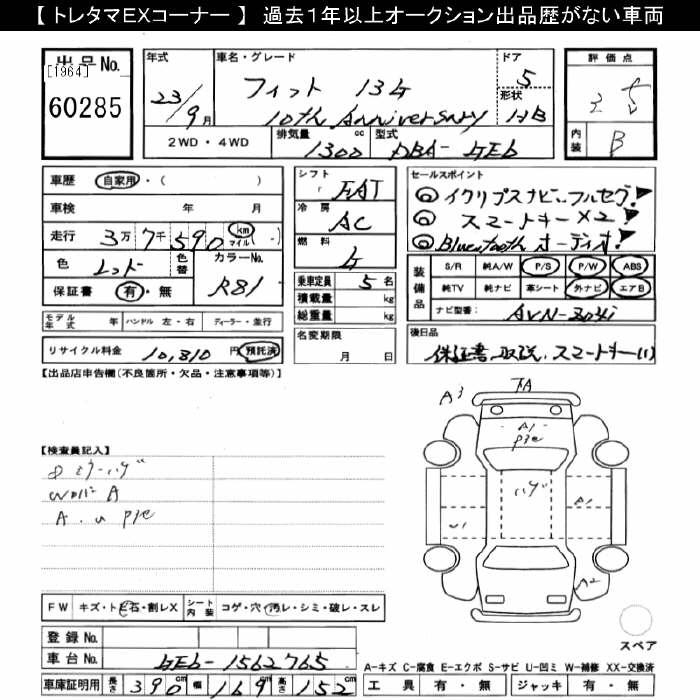 【トレタマEXコーナー】 過去1年以上オークション出品歴がない車両
出品No.
[1964]
60285
年式
23/9月
車名・グレード
フィット 13G
10th Anniversary
ドア
5
形状
HB
2WD・4WD
排気量
1300cc
型式
DBA-GE6
評価点
内装
B
車歴 自家用・( )
車検 年 月
走行 3万7千590 km マイル (-)
色 レッド 色替 カラーNo. R81
保証書 有・無
モデル年式 年 ハンドル 左・右 ディーラー・並行
リサイクル料金 10,810円 預託済
シフト
FAT
冷房
AC
燃料
G
乗車定員 5名
積載量 kg
総重量 kg
名変期限
月 日
セールスポイント
◎イクリプスナビ-フルセグ!
◎スマートキー×2!
◎Bluetooth オーディオ!
装備品
S/R 純A/W P/S P/W ABS
純TV 純ナビ 革シート 外ナビ エアB
ナビ型番: AVN-Z04i
後日品
保証書、取説、スマートキー(1)
【出品店申告欄(不良箇所・欠品・注意事項等)】
【検査員記入】
A3
下A
A1
ハゲ
A1
U1
A2
FW キズ・トビ石・割レX シート内装 コゲ・穴・汚レ・シミ・破レ・スレ
登録No.
車台No. GE6-1562765
車庫証明用 長さ 390cm 幅 169cm 高さ 152cm
スペア
A-キズ C-腐食 E-エクボ S-サビ U-凹ミ W-補修 XX-交換済
工具 有・無 ジャッキ 有・無